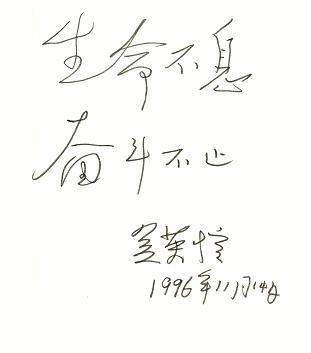 生命不息
奋斗不止
吴英恺
1996年11月14日